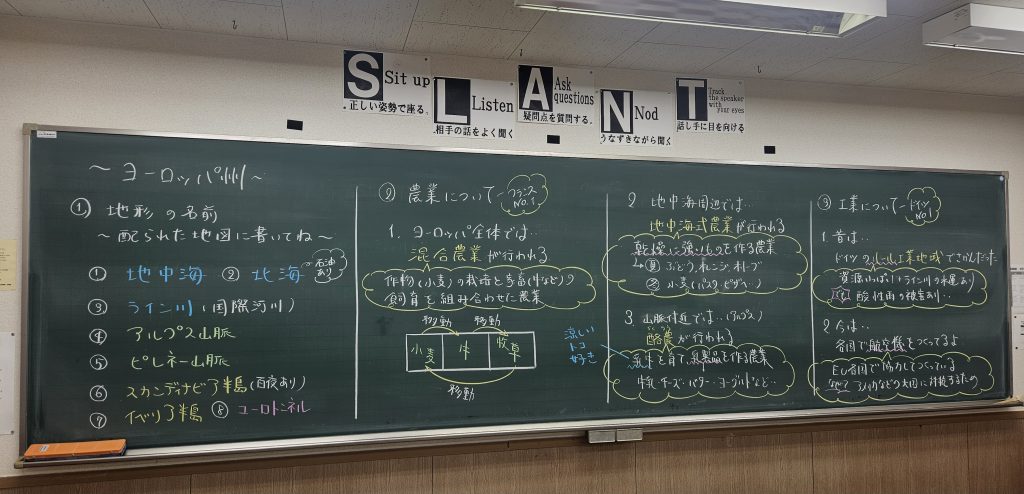 S Sit up
。正しい姿勢で座る。
L Listen
相手の話をよく聞く
A Ask questions
疑問点を質問する。
N Nod
うなずきながら聞く
T Track the speaker with your eyes
話し手に目を向ける
～ヨーロッパ州～
① 地形の名前
～配られた地図に書いてね～
① 地中海 ② 北海 石油あり
③ ライン川(国際河川)
④ アルプス山脈
⑤ ピレネー山脈
⑥ スカンディナビア半島(白夜あり)
⑦ イベリア半島 ⑧ ユーロトンネル
② 農業について フランスNo.1
1. ヨーロッパ全体では…
混合農業が行われる
作物(小麦)の栽培と家畜(牛など)の
飼育を組み合わせた農業
移動 移動
小麦 牛 牧草
移動
2 地中海周辺では…
地中海式農業が行われる
乾燥に強いものを作る農業
→夏 ぶどう、オレンジ、オリーブ
冬 小麦(パスタ・ピザ…)
3. 山脈付近では…(アルプス)
酪農が行われる
涼しいトコ好き
乳牛を育て、乳製品を作る農業
牛乳・チーズ・バター・ヨーグルトなど…
③ 工業について ドイツNo1
1. 昔は…
ドイツのルール工業地域でさかんだった
資源いっぱい!ライン川の水運あり
酸性雨の被害あり…
2 今は…
各国で航空機をつくってるよ
EU各国で協力してつくっている
アメリカなどの大国に対抗するため